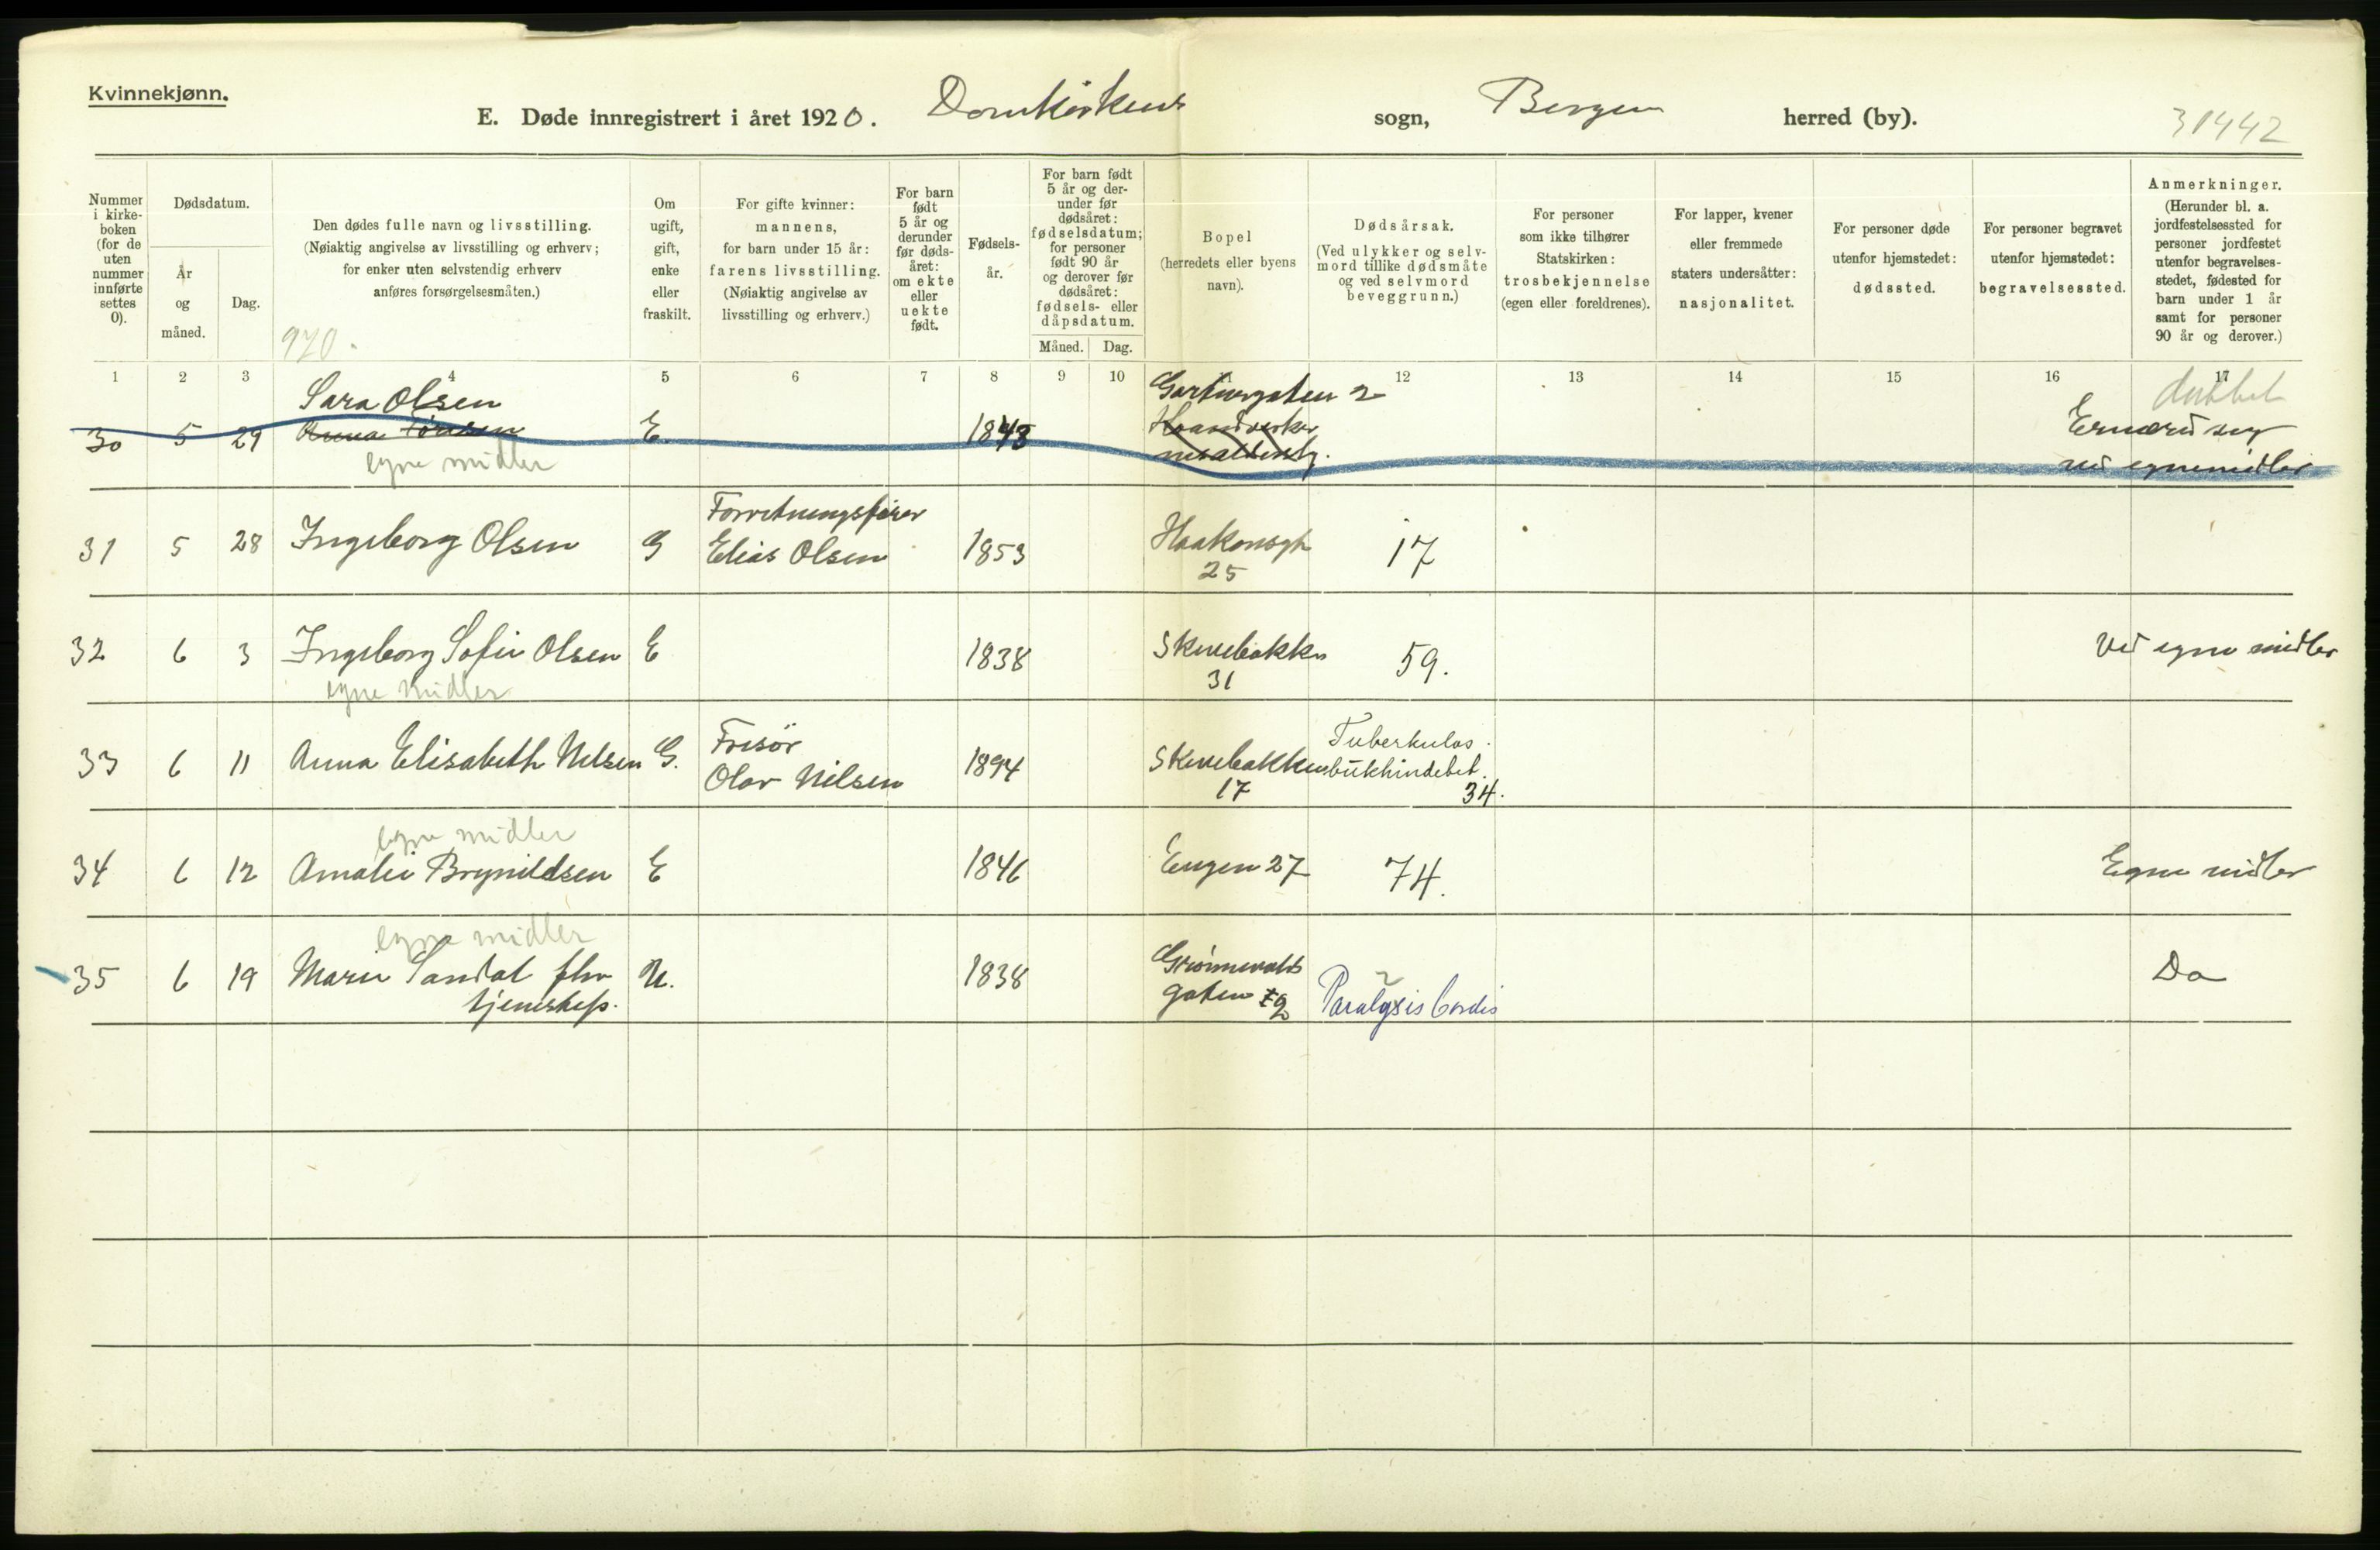 Kvinnekjønn.
E. Døde innregistrert i året 1920. Domkirkens sogn, Bergen herred (by). 31442
Nummer i kirke-boken (for de uten nummer innførte settes 0).
Dødsdatum.
År og måned.
Dag.
Den dødes fulle navn og livsstilling.
(Nøiaktig angivelse av livsstilling og erhverv;
for enker uten selvstendig erhverv
anføres forsørgelsesmåten.)
920.
Om ugift, gift, enke eller fraskilt.
For gifte kvinner:
mannens,
for barn under 15 år:
farens livsstilling.
(Nøiaktig angivelse av
livsstilling og erhverv.)
For barn født 5 år og derunder før døds-året: om ekte eller uekte født.
Fødsels-år.
For barn født 5 år og der-under før dødsåret: fødselsdatum; for personer født 90 år og derover før dødsåret: fødsels- eller dåpsdatum.
Måned. Dag.
Bopel
(herredets eller byens
navn).
Dødsårsak.
(Ved ulykker og selv-
mord tillike dødsmåte
og ved selvmord
beveggrunn.)
For personer
som ikke tilhører
Statskirken:
trosbekjennelse
(egen eller foreldrenes).
For lapper, kvener
eller fremmede
staters undersåtter:
nasjonalitet.
For personer døde
utenfor hjemstedet:
dødssted.
For personer begravet
utenfor hjemstedet:
begravelsessted.
Anmerkninger.
(Herunder bl. a.
jordfestelsessted for
personer jordfestet
utenfor begravelses-
stedet, fødested for
barn under 1 år
samt for personer
90 år og derover.)
1 2 3 4 5 6 7 8 9 10 12 13 14 15 16 17
Sara Olsen Gartnergaten 2 dubbet
30 5 29 Anna E 1843 Haandverker Ernærer seg
egne midler ved egne midler
Forretningsfører
31 5 28 Ingeborg Olsen G Elias Olsen 1853 Haakonsgt 17
25
32 6 3 Ingeborg Sofie Olsen E 1838 Skivebakken 59. Ved egne midler
egne midler 31
Frisør Tuberkuløs
33 6 11 Anna Elisabeth Nilsen G. Olav Nilsen 1894 Skivebakken bukhindebet.
17 34.
egne midler
34 6 12 Amalie Brynildsen E 1846 Engen 27 74. Egne midler
egne midler
35 6 19 Marie Sandal fhv U. 1838 Grønnevolds Do
tjenestep. gaten Paralysis Cordis